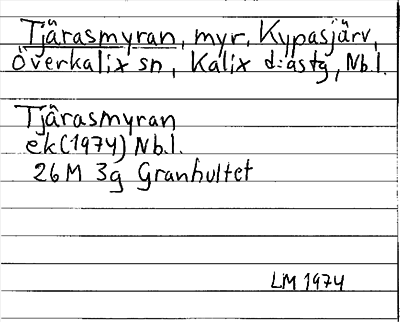 Tjärasmyran, myr, Kypasjärv,
Överkalix sn, Kalix d:astg, Nb.l.
Tjärasmyran
ek(1974) Nb.l.
26M 3g Granhultet
LM 1974